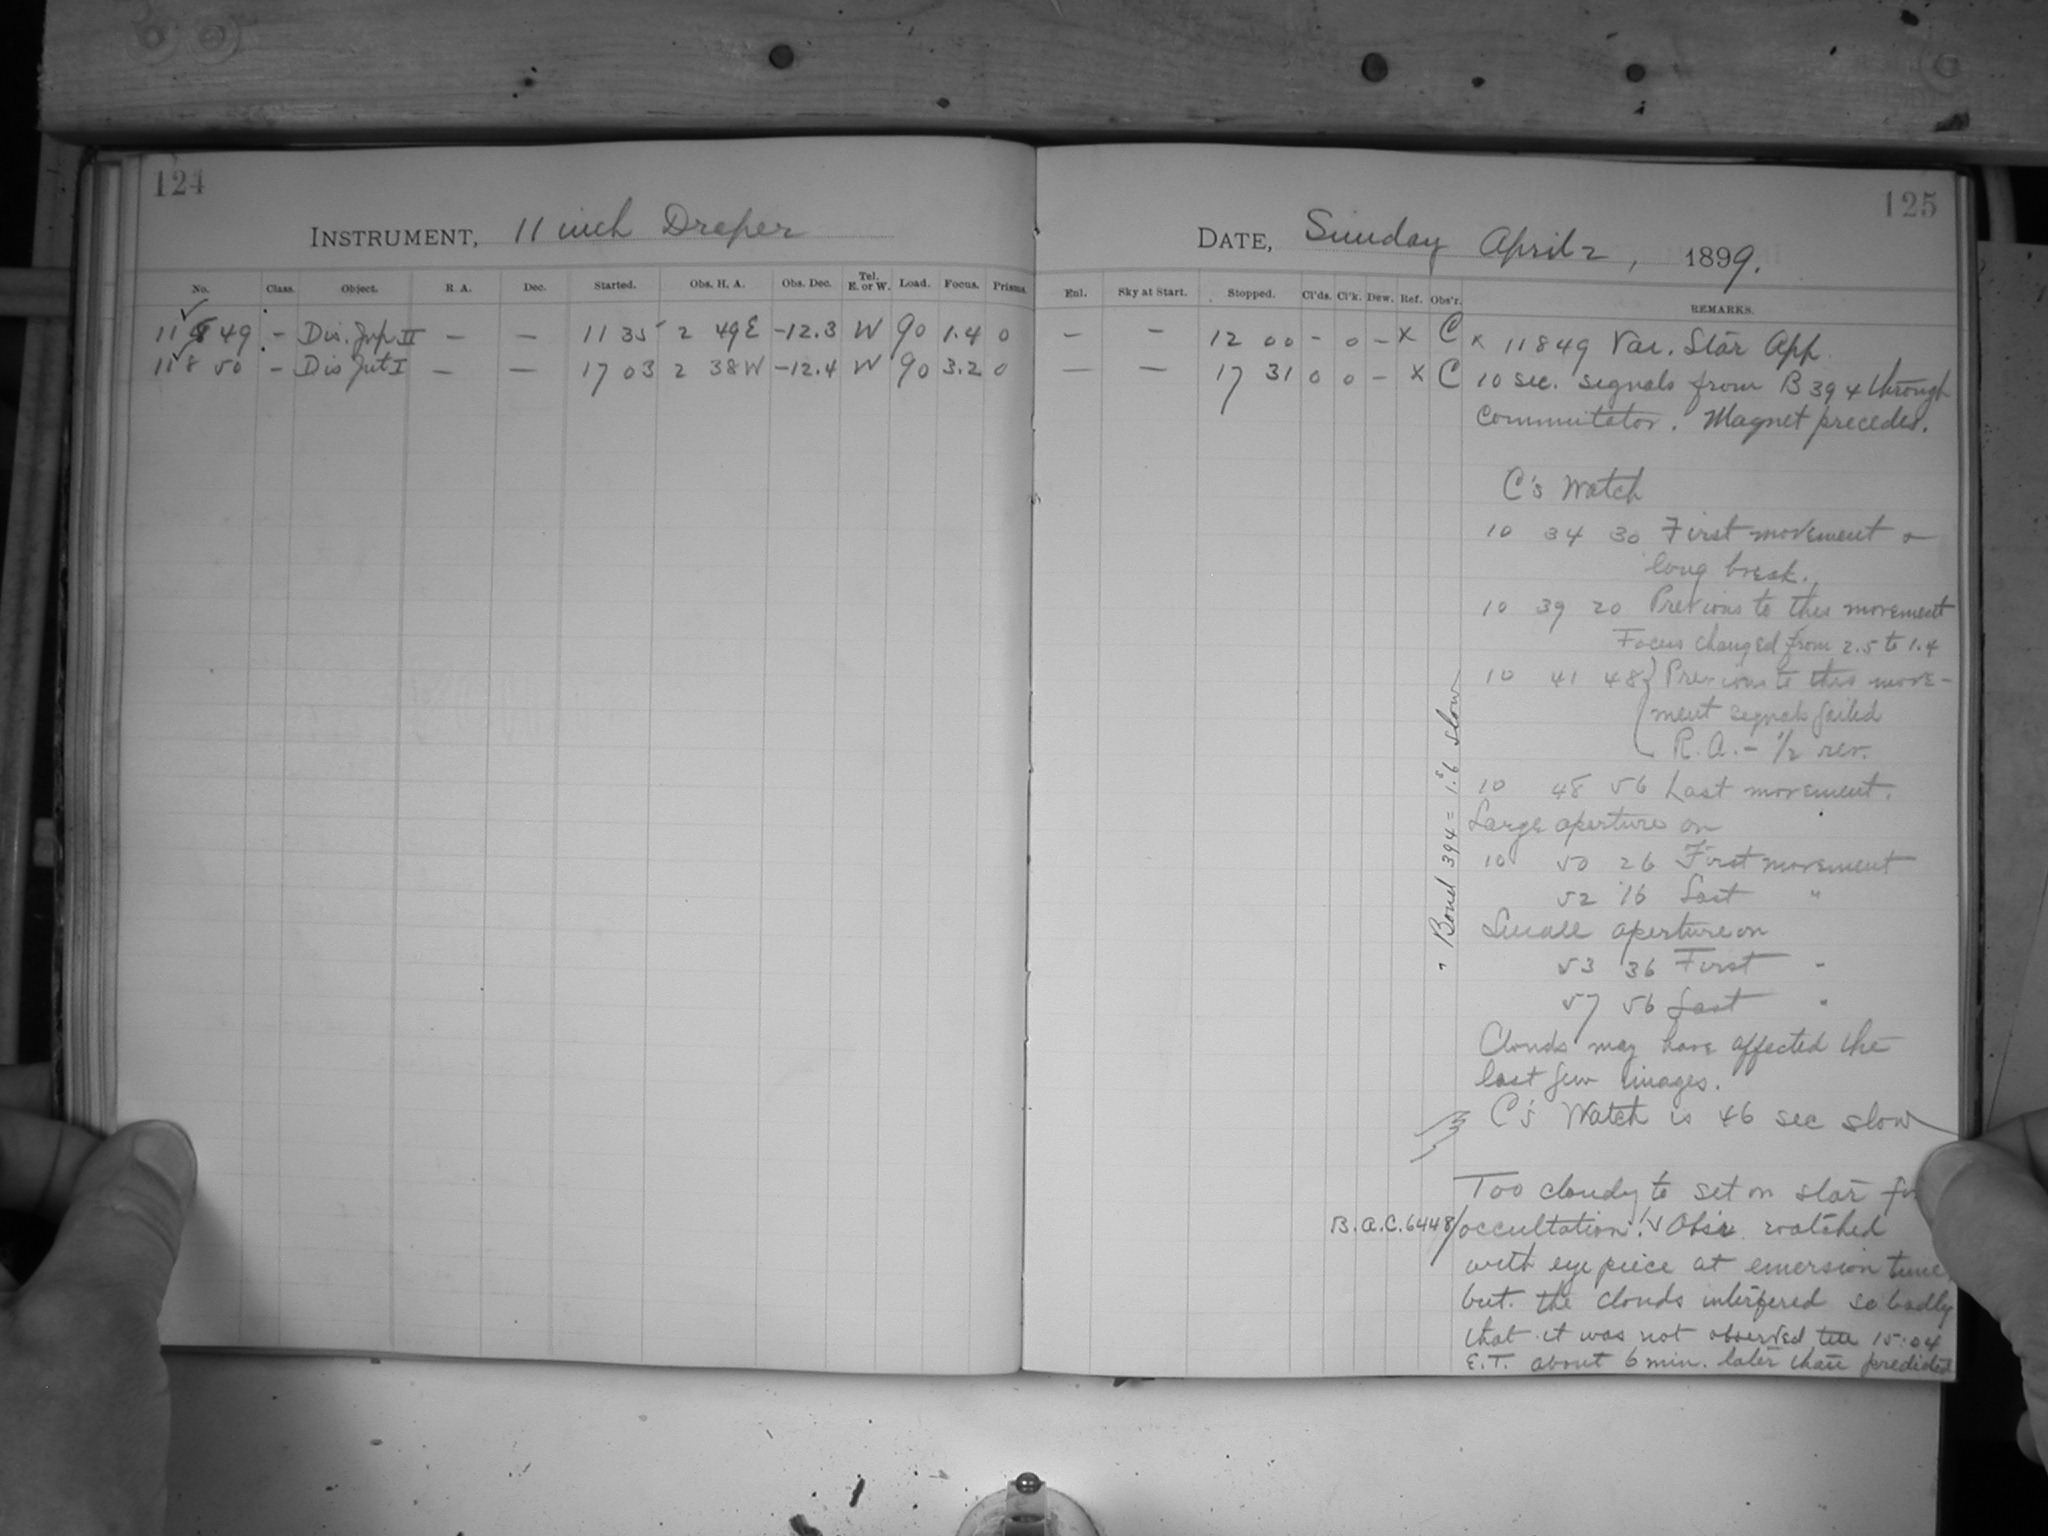 124
INSTRUMENT, 11 inch Draper
No. Class. Object. R. A. Dec. Started. Obs. H. A. Obs. Dec. Tel. E. or W. Load. Focus. Prisms.
11849 - Dis. Jup II — — 11 35 2 49E -12.3 W 90 1.4 0
11850 - Dis Jup I — — 17 03 2 38W -12.4 W 90 3.2 0
125
DATE, Sunday April 2, 1899.
Enl. Sky at Start. Stopped. Cl'ds. Cl'k. Dew. Ref. Obs'r. REMARKS.
— — 12 00 - 0 - x C x 11849 Var. Star App.
— — 17 31 0 0 - x C 10 sec. signals from B394 through
commutator. Magnet precedes.
C's Watch
10 34 30 First movement &
long break.
10 39 20 Previous to this movement
Focus changed from 2.5 to 1.4
10 41 48 Previous to this move-
ment signals failed
R.A. - 1/2 rev.
10 48 56 Last movement.
Large aperture on
10 50 26 First movement
52 16 Last "
Small aperture on
53 36 First "
57 56 Last "
Clouds may have affected the
last few images.
C's Watch is 46 sec slow
Bond 394 = 1.6 slow
Too cloudy to set on star
B.A.C. 6448 occultation. Obs'r watched
with eyepiece at emersion time
but the clouds interfered so badly
that it was not observed till 15:04
E.T. about 6 min. later than predicted